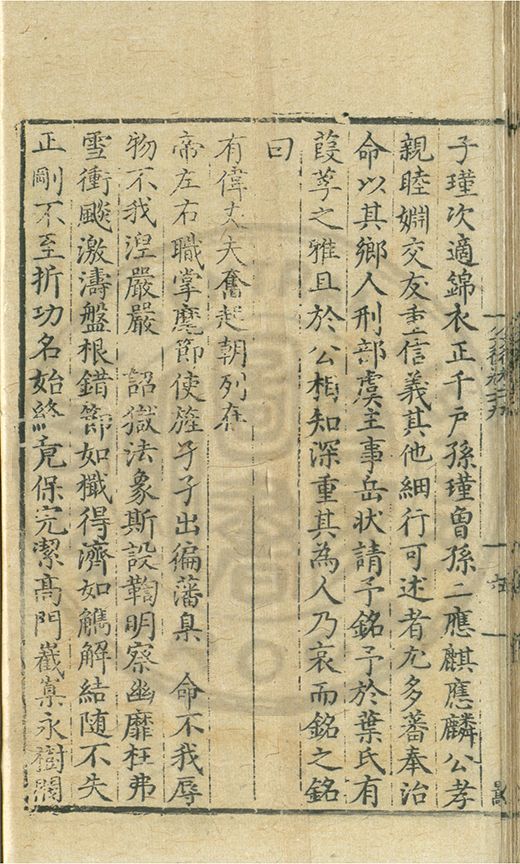 子瑾次適錦衣正千戶孫瑾曾孫二應麒應麟公孝
親睦婣交友重信義其他細行可述者尤多蕃奉治
命以其鄉人刑部虞主事岳狀請予銘予於葉氏有
葭莩之雅且於公相知深重其為人乃哀而銘之銘
曰
有偉丈夫奮起朝列在
帝左右職掌麾節使旌孑孑出徧藩臬 命不我辱
物不我涅嚴嚴 詔獄法象斯設鞫明察幽靡枉弗
雪衝飇激濤盤根錯節如檝得濟如觿解結隨不失
正剛不至折功名始終竟保完潔高門嶻嶪永樹閥